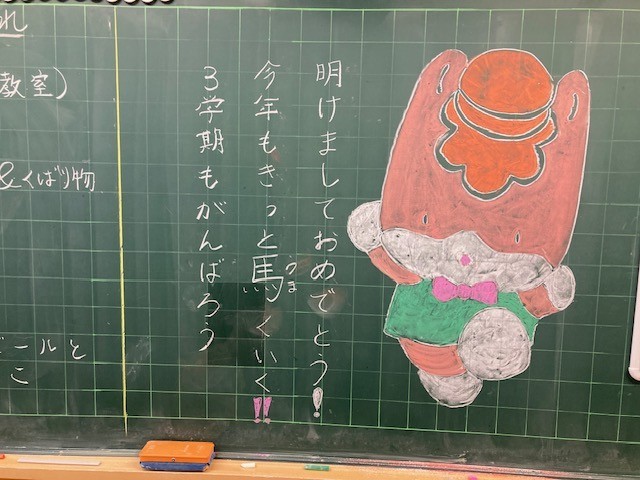 明けましておめでとう!
今年もきっと馬くいく!!
うま
3学期もがんばろう
れ
教室)
&くばり物
ールと
こ